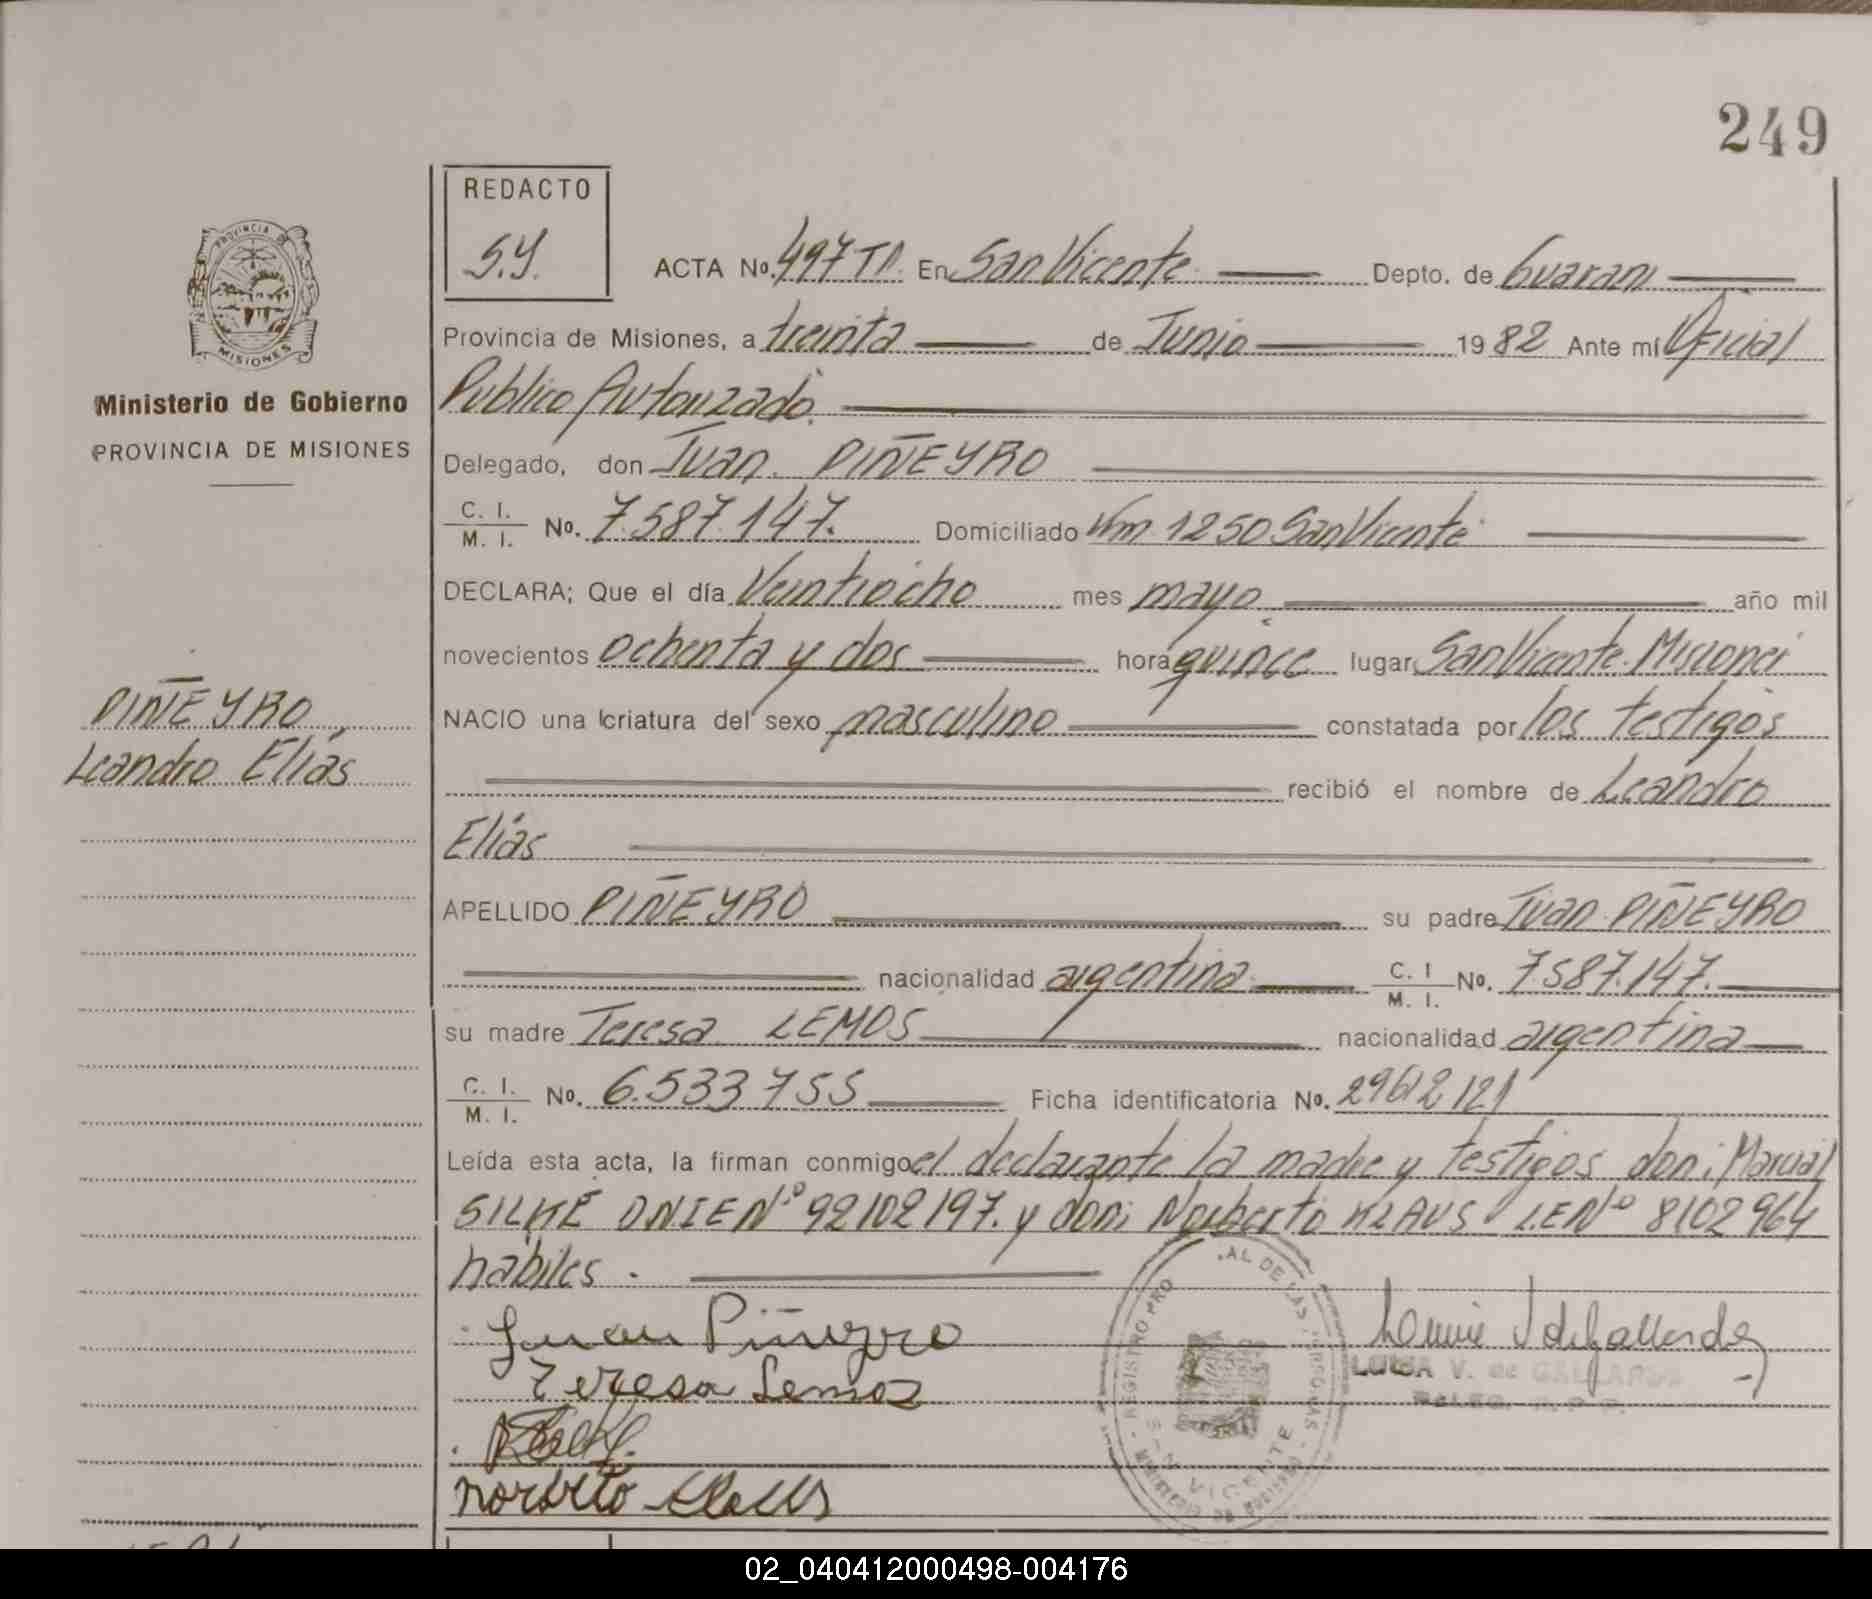 249
REDACTO
S.Y.
ACTA No. 497 TD. En San Vicente Depto. de Guarani
Provincia de Misiones, a treinta de Junio 1982 Ante mí Oficial
Publico Autorizado.
Delegado, don Juan PIÑEYRO
C. I. / M. I. No. 7.587.147. Domiciliado Km 1250 San Vicente
DECLARA; Que el día Veintiocho mes mayo año mil
novecientos ochenta y dos hora quince lugar San Vicente. Misiones
NACIO una criatura del sexo masculino constatada por los testigos
recibió el nombre de Leandro
Elías
APELLIDO PIÑEYRO su padre Juan PIÑEYRO
nacionalidad argentina C. I / M. I. No. 7.587.147.
su madre Teresa LEMOS nacionalidad argentina
C. I. / M. I. No. 6.533755 Ficha identificatoria No. 29612121
Leída esta acta, la firman conmigo el declarante la madre y testigos don: Marcial
SILKE DNIE Nº 92102197. y don: Norberto KLAUS L.E Nº 8102964
habiles.
Juan Piñeyro
Teresa Lemos
Norberto Klaus
LUISA V. de GALLARDO
REGISTRO PRO AL DE LAS PERSONAS
SAN VICENTE
MINISTERIO DE GOBIERNO
PROVINCIA DE
MISIONES
Ministerio de Gobierno
PROVINCIA DE MISIONES
PIÑEYRO
Leandro Elías
02_040412000498-004176